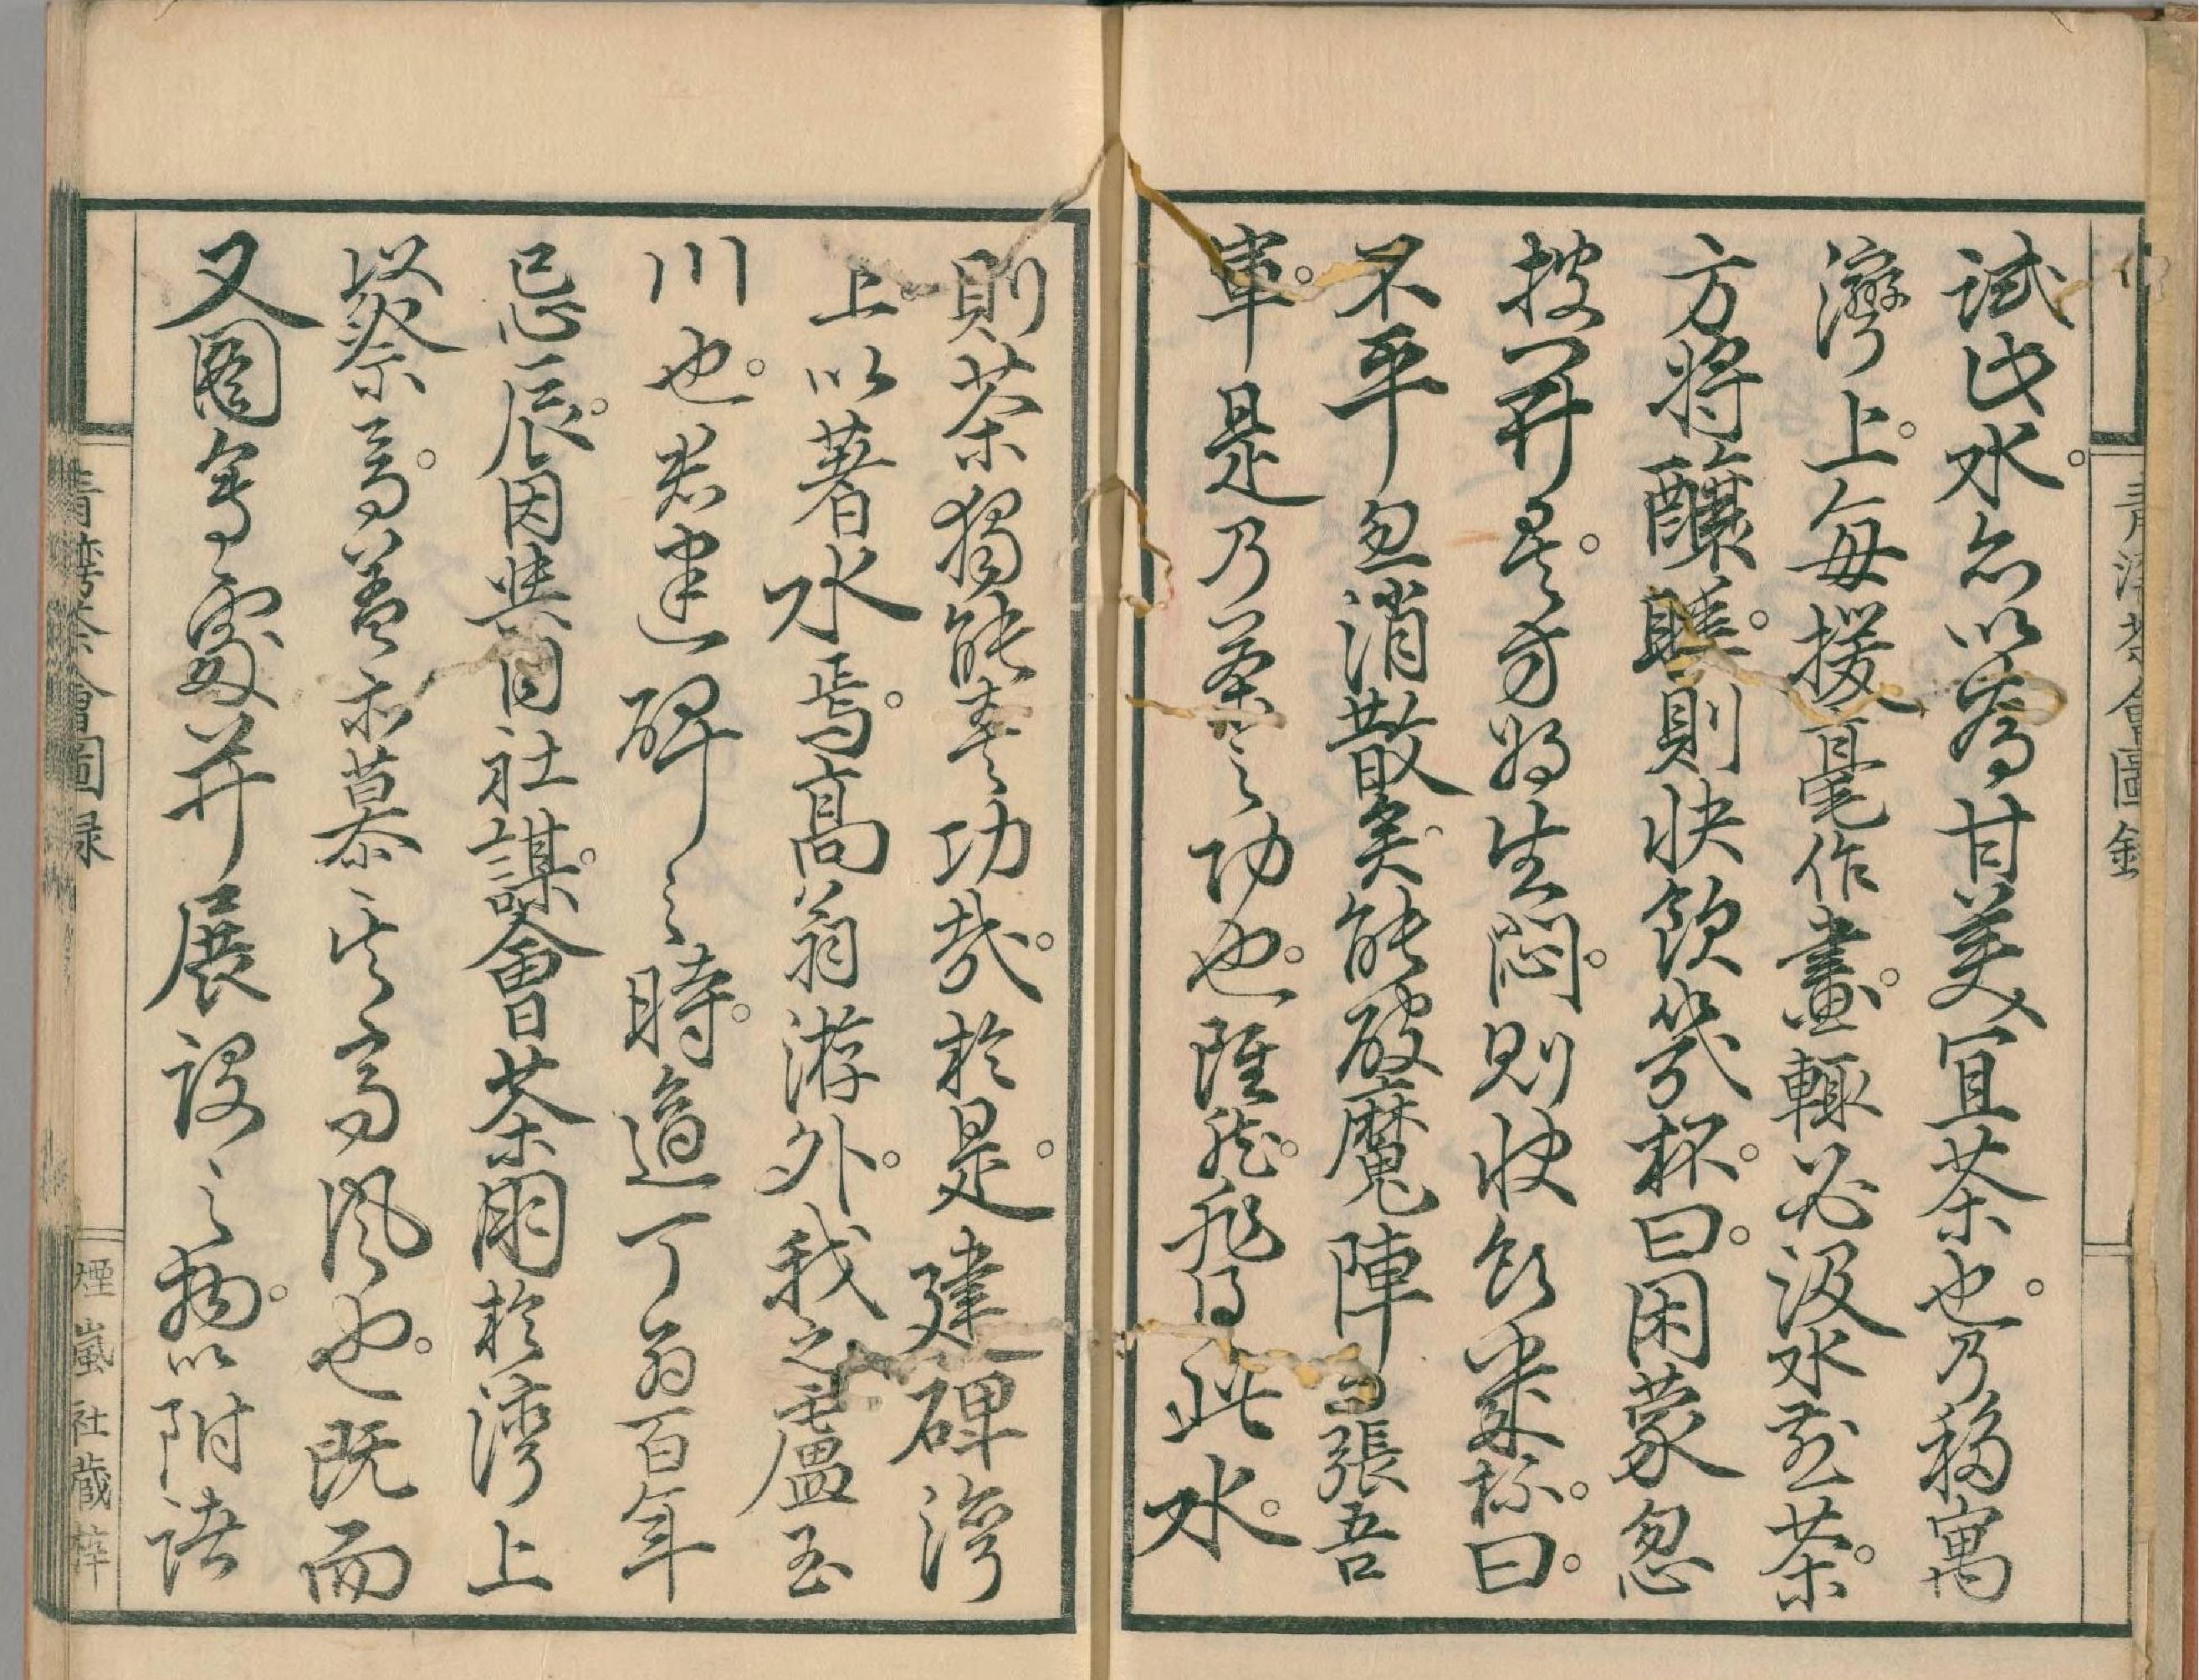 試此水。亦以為甘美宜茶也。乃移寓
灣上。每援毫作畫。輒必汲水煎茶。
方將釀睡。則快飲幾杯。曰。困蒙忽
披。一再是。方將生悶。則快飲案杯。曰。
不平忽消散矣。能破魔陣。張吾
軍。是乃茶之功也。雖然。非得此水。
則茶獨能奏之功哉。於是。建碑灣
上。以著水焉。高翁游外。我之盧玉
川也。君建碑之時。適丁翁百年
忌辰。因與同社謀。會茶朋於灣上
以祭焉。蓋亦慕其高風也。既而
又圖寫處々并展設之物。以附諸
青灣茶會圖錄
青灣茶會圖録
煙嵐社藏梓